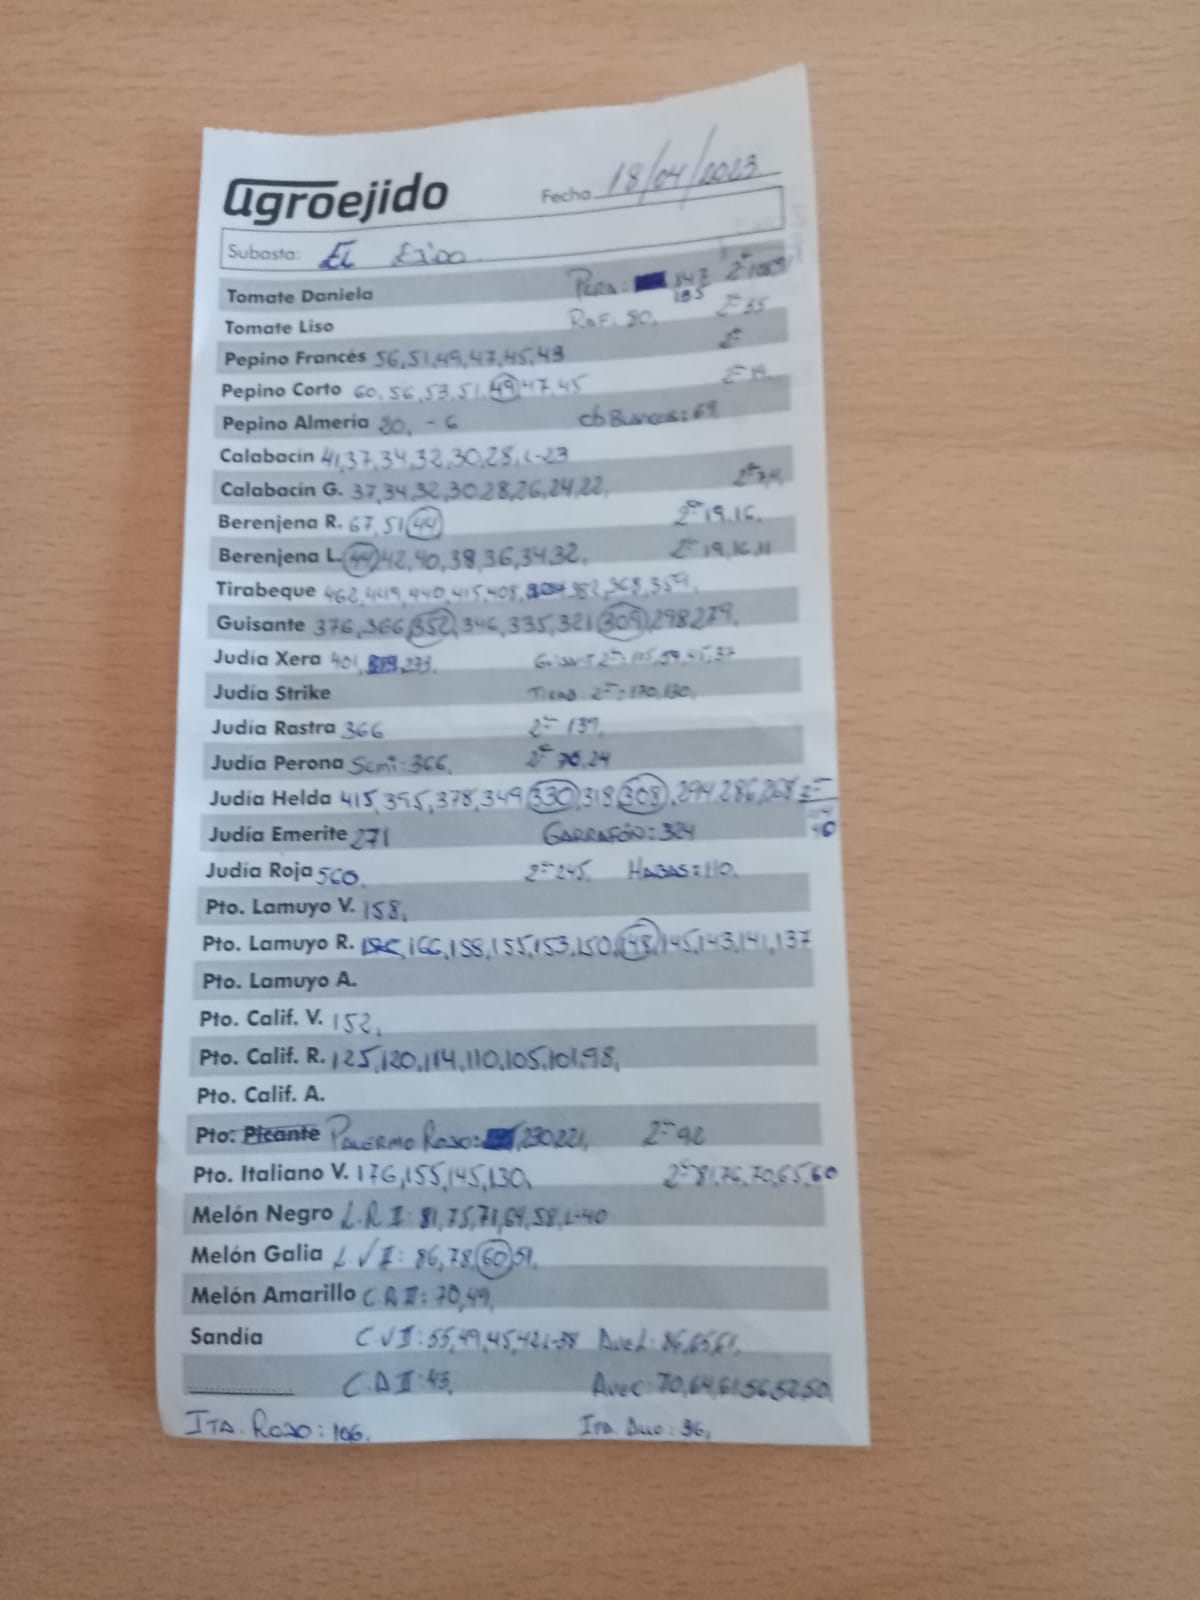 agroejido Fecha 18/04/2023
Subasta: El Ejido
Tomate Daniela Pera: 147 2ª
135
Tomate Liso Raf. 80. 2ª 35
Pepino Francés 56,51,49,47,45,43 2ª
Pepino Corto 60,56,53,51,49,47,45 2ª
Pepino Almería 20, -6 Cb Blancos: 69
Calabacín 41,37,34,32,30,28,L-23
Calabacín G. 37,34,32,30,28,26,24,22, 2ª
Berenjena R. 67,51,44 2ª 19,16.
Berenjena L. 44,42,40,38,36,34,32. 2ª 19,16,11
Tirabeque 462,449,440,415,408, 382,368,359.
Guisante 376,366,352,346,335,321,309,298,279.
Judía Xera 401, 273. Guisant 2ª: 59,45,37
Judía Strike Tirab. 2ª: 170,130.
Judía Rastra 366 2ª 139.
Judía Perona Semi: 366. 2ª 70,24
Judía Helda 415,395,378,349,330,318,308,294,286,268 2ª
Judía Emerite 271 Garrafón: 324 40
Judía Roja 560. 2ª 245. Habas: 110.
Pto. Lamuyo V. 158.
Pto. Lamuyo R. 166,158,155,153,150,148,145,143,141,137
Pto. Lamuyo A.
Pto. Calif. V. 152.
Pto. Calif. R. 125,120,114,110,105,101,98.
Pto. Calif. A.
Pto. Picante Palermo Rojo: 230,221. 2ª 92
Pto. Italiano V. 176,155,145,130. 2ª 81,76,70,65,60
Melón Negro L.R II: 81,75,71,64,58,L-40
Melón Galia L.V II: 86,78,60,51.
Melón Amarillo C.R II: 70,49.
Sandía C.V II: 55,49,45,42,L-38
C.A II: 43. 70,64,61,56,52,50.
Ita. Rojo: 106. Ita. Duo: 36.